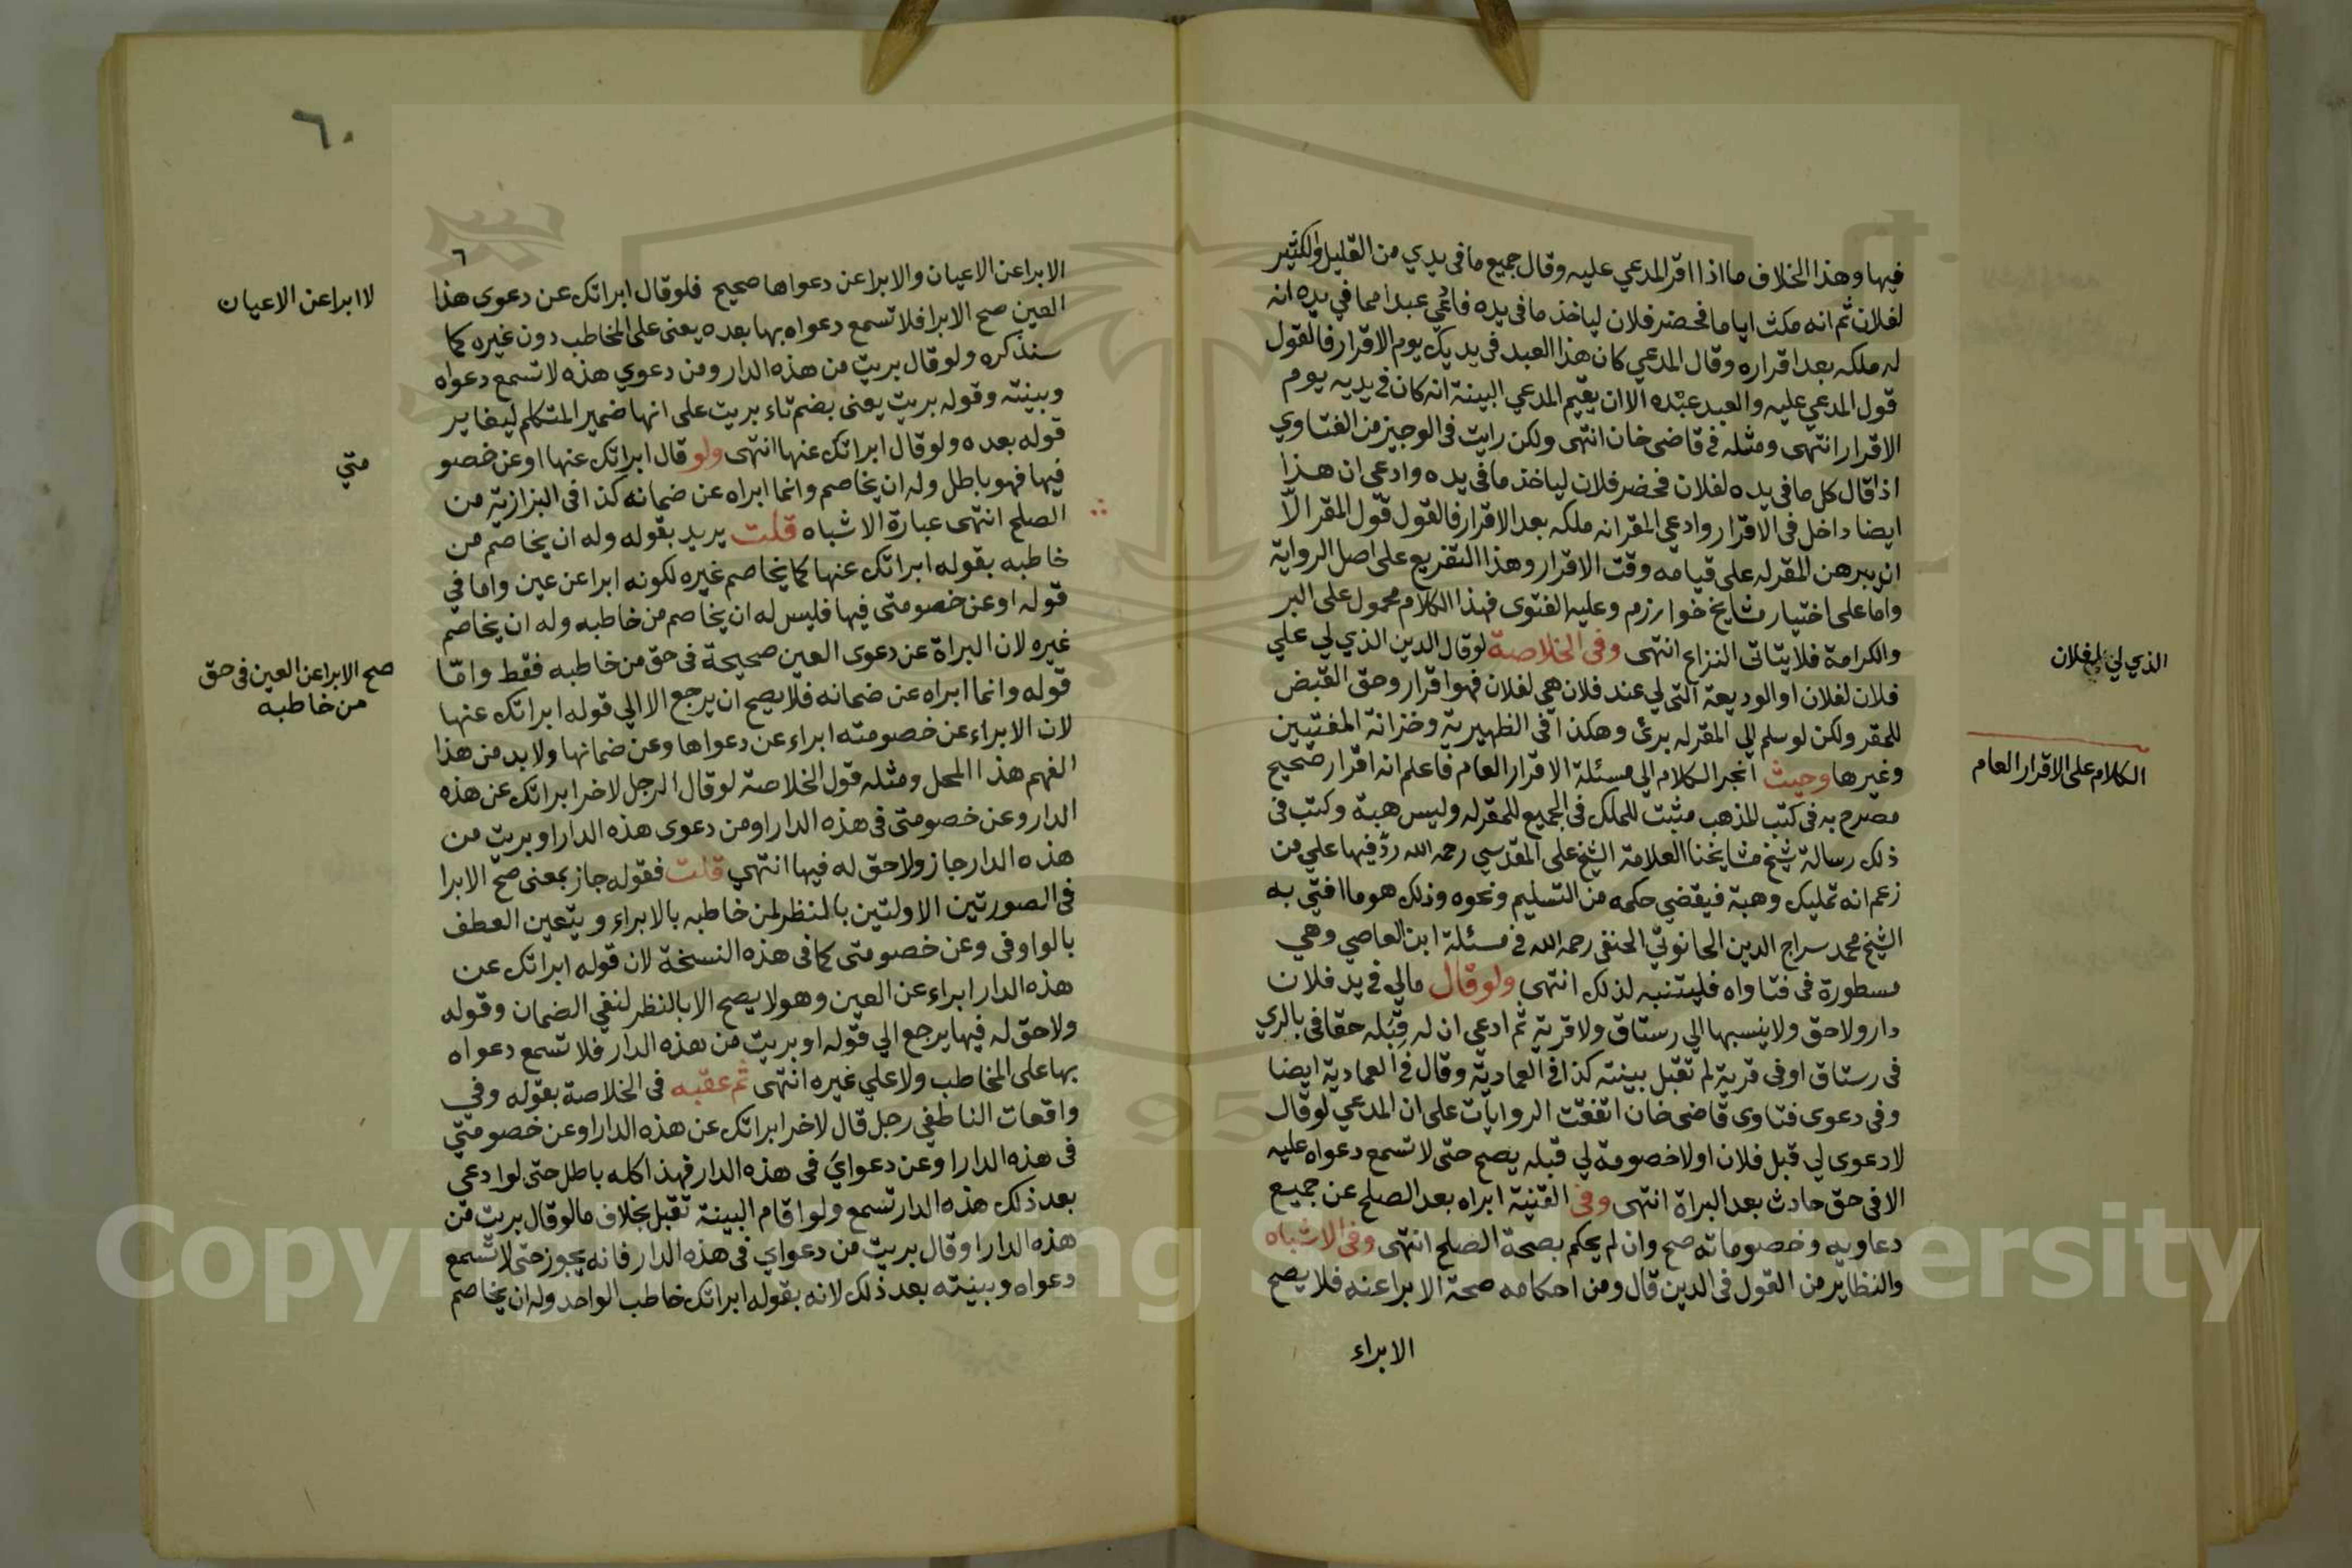 فيها وهذا الخلاف ما اذا اقر المدعي عليه وقال جميع ما فى يدي من القليل والكثير
لفلان ثم انه مكث اياما فحضر فلان لياخذ ما فى يده فادعي عبدا مما في يده انه
له ملكه بعد اقراره وقال المدعي كان هذا العبد فى يديك يوم الاقرار فالقول
قول المدعي عليه والعبد عبده الا ان يقيم المدعي البينة انه كان في يديه يوم
الاقرار انتهى ومثله في قاضى خان انتهى ولكن رايت فى الوجيز من الفتاوي
اذا قال كل ما فى يده لفلان فحضر فلان لياخذ ما فى يده وادعى ان هذا
ايضا داخل فى الاقرار وادعي المقر انه ملكه بعد الاقرار فالقول قول المقر الّا
ان يبرهن المقر له على قيامه وقت الاقرار وهذا التفريع على اصل الرواية
واما على اختيار مشايخ خوارزم وعليه الفتوى فهذا الكلام محمول على البر
والكرامة فلا يتاتى النزاع انتهى وفى الخلاصة لو قال الدين الذي لي علي
فلان لفلان او الوديعة التى لي عند فلان هي لفلان فهو اقرار وحق القبض
للمقر ولكن لو سلم الي المقر له برئ وهكذا فى الظهيرية وخزانة المفتيين
وغيرها وحيث انجر الكلام الى مسئلة الاقرار العام فاعلم انه اقرار صحيح
مصرح به فى كتب المذهب مثبت للملك فى الجميع للمقر له وليس هبة وكتب فى
ذلك رسالة شيخ مشايخنا العلامة الشيخ على المقدسي رحمه الله ردّ فيها علي من
زعم انه تمليك وهبة فيقضي حكمه من التسليم ونحوه وذلك هو ما افتي به
الشيخ محمد سراج الدين الحانوتي الحنفى رحمه الله في مسئلة ابن العاصي وهي
مسطورة فى فتاواه فليتنبه لذلك انتهى ولو قال مالي في يد فلان
دار ولا حق ولا ينسبها الي رستاق ولا قرية ثم ادعى ان له قبله حقا فى بالري
فى رستاق او فى قرية لم تقبل بينته كذا في العمادية وقال في العمادية ايضا
وفى دعوى فتاوى قاضى خان اتفقت الروايات على ان المدعي لو قال
لا دعوى لي قبل فلان او لا خصومة لي قبله يصح حتى لا تسمع دعواه عليه
الا فى حق حادث بعد البراة انتهى وفى القنية ابراه بعد الصلح عن جميع
دعاويه وخصوماته صح وان لم يحكم بصحة الصلح انتهى وفى الاشباه
والنظاير من القول فى الدين قال ومن احكامه صحة الابرا عنه فلا يصح
الابراء
الذي لي
لفلان
الكلام على الاقرار العام
٦٠
٦
الابرا عن الاعيان والابرا عن دعواها صحيح فلو قال ابراتك عن دعوى هذا
العين صح الابرا فلا تسمع دعواه بها بعده يعنى على المخاطب دون غيره كما
سنذكره ولو قال بريت من هذه الدار ومن دعوي هذه لا تسمع دعواه
وبينته وقوله بريت يعنى بضم تاء بريت على انها ضمير المتكلم ليغاير
قوله بعده ولو قال ابراتك عنها انتهى ولو قال ابراتك عنها او عن خصو
فيها فهو باطل وله ان يخاصم وانما ابراه عن ضمانه كذا فى البزازية من
الصلح انتهى عبارة الاشباه قلت يريد بقوله وله ان يخاصم من
خاطبه بقوله ابراتك عنها كما يخاصم غيره لكونه ابرا عن عين واما في
قوله او عن خصومتى فيها فليس له ان يخاصم من خاطبه وله ان يخاصم
غيره لان البراة عن دعوى العين صحيحة فى حق من خاطبه فقط وامّا
قوله وانما ابراه عن ضمانه فلا يصح ان يرجع الا الي قوله ابراتك عنها
لان الابراء عن خصومته ابراء عن دعواها وعن ضمانها ولا بد من هذا
الفهم هذا المحل ومثله قول الخلاصة لو قال الرجل لاخر ابراتك عن هذه
الدار وعن خصومتى فى هذه الدار او من دعوى هذه الدار او بريت من
هذه الدار جاز ولا حق له فيها انتهي قلت فقوله جاز بمعنى صح الابرا
فى الصورتين الاولتين بالنظر لمن خاطبه بالابراء ويتعين العطف
بالواو فى وعن خصومتى كما فى هذه النسخة لان قوله ابراتك عن
هذه الدار ابراء عن العين وهو لا يصح الا بالنظر لنفي الضمان وقوله
ولا حق له فيها يرجع الي قوله او بريت من هذه الدار فلا تسمع دعواه
بها على المخاطب ولا علي غيره انتهى ثم عقبه فى الخلاصة بقوله وفي
واقعات الناطفي رجل قال لاخر ابراتك عن هذه الدار او عن خصومتي
فى هذه الدار او عن دعواي فى هذه الدار فهذا كله باطل حتى لو ادعي
بعد ذلك هذه الدار تسمع ولو اقام البينة تقبل بخلاف ما لو قال بريت من
هذه الدار او قال بريت من دعواي فى هذه الدار فانه يجوز حتى لا تسمع
دعواه وبينته بعد ذلك لانه بقوله ابراتك خاطب الواحد وله ان يخاصم
لا ابرا عن الاعيان
متي
صح الابرا عن العين فى حق
من خاطبه
Copyright © King Saud University